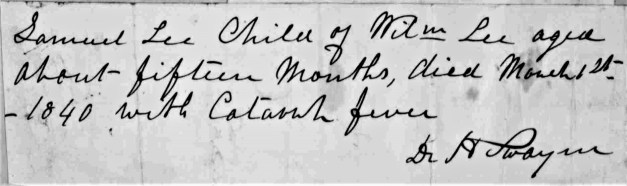 Samuel Lee Child of Wilm Lee aged
about fifteen Months, died March 1st
- 1840 with Catarrh fever
Dr H Swayne